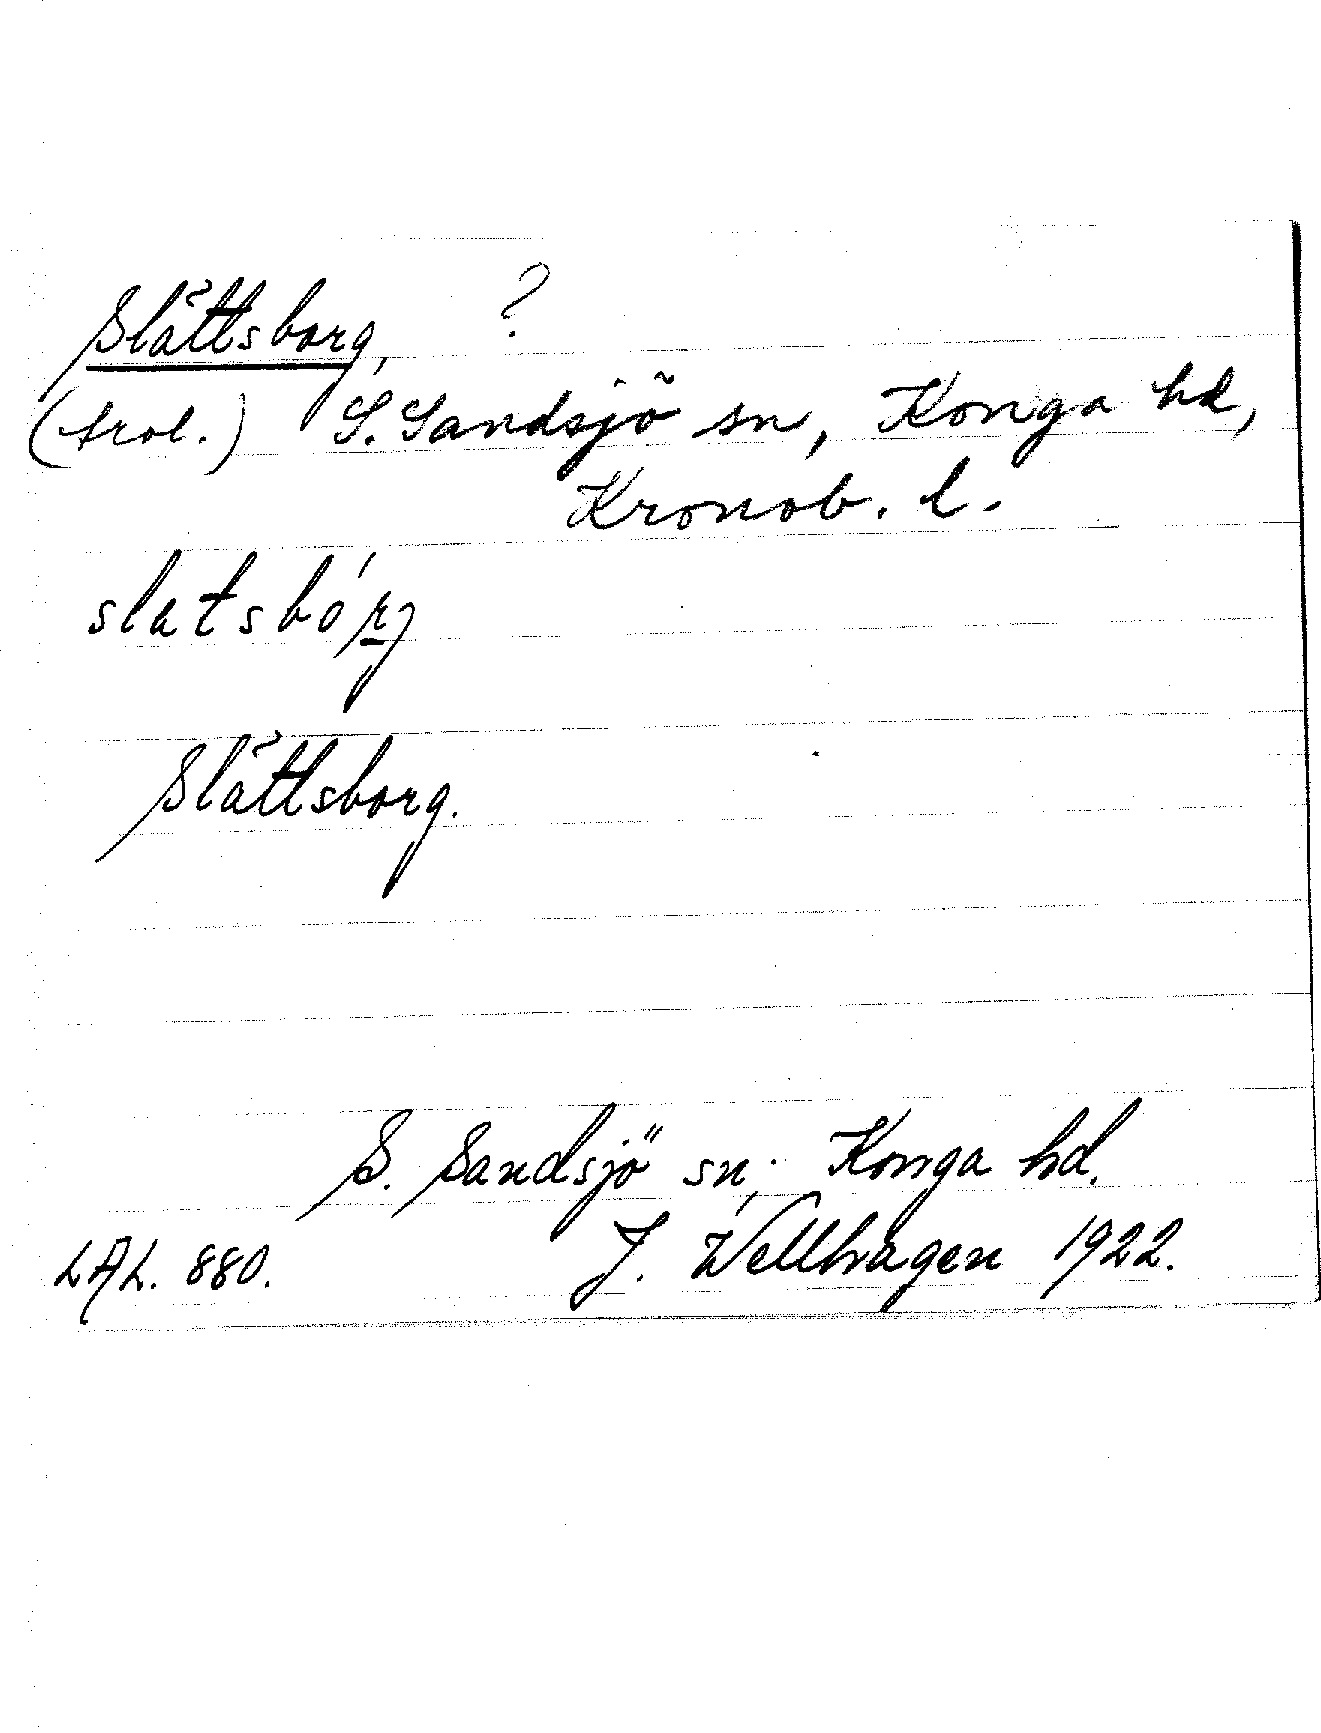 Slättsborg ?
(trol.) S. Sandsjö sn, Konga hd,
Kronob. l.
slatsbórg
Slättsborg.
S. Sandsjö sn, Konga hd.
LAL. 880. J. Wellhagen 1922.